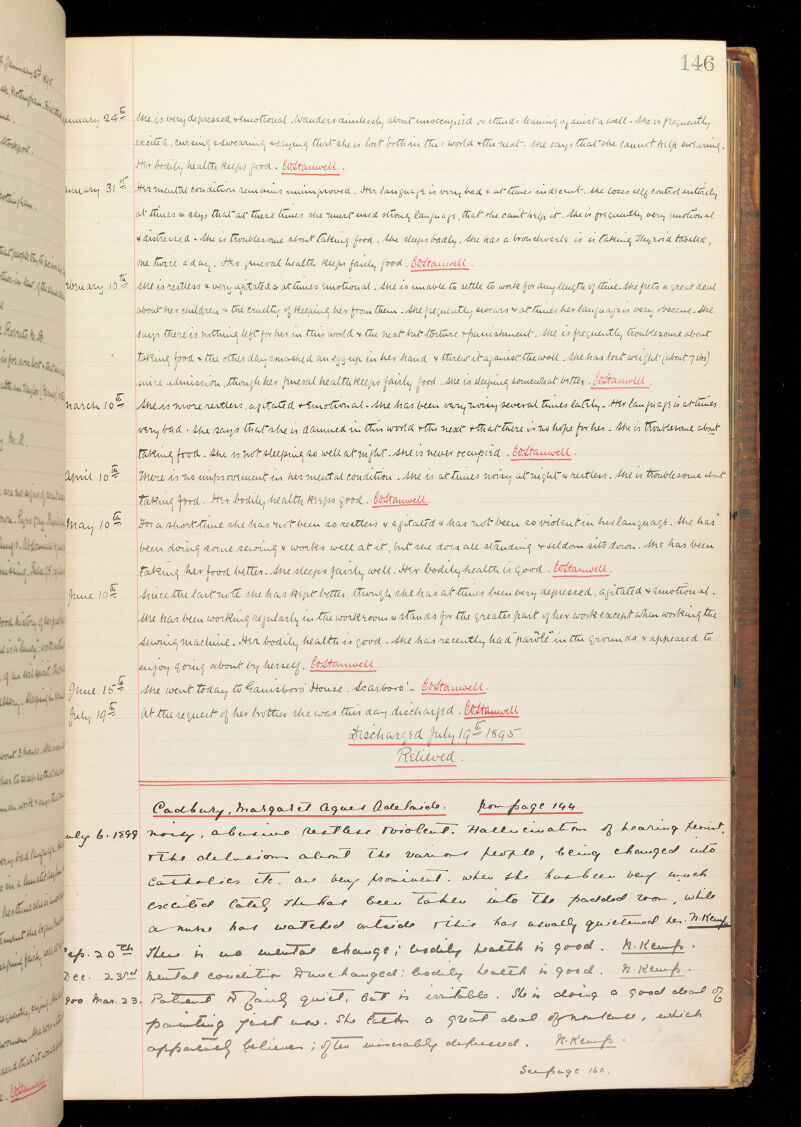 146
January 24th She is very depressed & emotional. Wanders aimlessly about unoccupied or stands leaning against a wall. She is frequently
excited, cursing & swearing & saying that she is lost both in this world & the next. She says that she cannot help swearing.
Her bodily health keeps good. C.O.Stanwell.
January 31st Her mental condition remains unimproved. Her language is very bad & at times indecent. She loses self control entirely
at times & says that at these times she must need strong language, that she can't help it. She is frequently very emotional
& distressed. She is troublesome about taking food. She sleeps badly. She has a bronchocele & is taking Thyroid tabellae,
one twice a day. Her general health keeps fairly good. C.O.Stanwell.
February 10th She is restless & very agitated & at times emotional. She is unable to settle to work for any length of time. She frets a great deal
about her children & the cruelty of keeping her from them. She frequently swears & at times her language is very obscene. She
says there is nothing left for her in this world & the next but torture & punishment. She is frequently troublesome about
taking food & the other day smashed an egg up in her hand & threw it against the wall. She has lost weight (about 7 lbs)
since admission, though her general health keeps fairly good. She is sleeping somewhat better. C.O.Stanwell.
March 10th She is more restless, agitated & emotional. She has been very noisy several times lately. Her language is at times
very bad. She says that she is damned in this world & the next & that there is no hope for her. She is troublesome about
taking food. She is not sleeping so well at night. She is never occupied. C.O.Stanwell.
April 10th There is no improvement in her mental condition. She is at times noisy at night & restless. She is troublesome about
taking food. Her bodily health keeps good. C.O.Stanwell.
May 10th For a short time she has not been so restless & agitated & has not been so violent in her language. She has
been doing some sewing & works well at it, but she does all standing & seldom sits down. She has been
taking her food better. She sleeps fairly well. Her bodily health is good. C.O.Stanwell.
June 10th Since the last note she has kept better, though she has at times been very depressed, agitated & emotional.
She has been working regularly in the workroom & stands for the greater part of her work except when working the
sewing machine. Her bodily health is good. She has recently had "parole" in the grounds & appeared to
enjoy going about by herself. C.O.Stanwell.
June 15th She went today to Gainsboro' House. Scarboro'. C.O.Stanwell.
July 19th At the request of her brother she was this day discharged. C.O.Stanwell
Discharged July 19th 1895
Relieved.
Cadbury, Margaret Agnes Adelaide. from page 144
July 6. 1899 noisy, abusive restless & violent. Hallucinations of hearing persist,
& the delusions about the various people, being changed into
Catholics etc. are very prominent. When she has been very much
excited lately she has been taken into the padded room, while
a nurse has watched outside & this has usually quietened her. N. Kemp
Sep. 20th There is no mental change; bodily health is good. N. Kemp.
Dec. 23rd Mental condition is unchanged: bodily health is good. N. Kemp.
1900 Mar. 23. Patient is fairly quiet, but is irritable. She is doing a good deal of
painting just now. She talks a great deal of nonsense, which
apparently believes; often miserably depressed. N. Kemp.
See page 160.